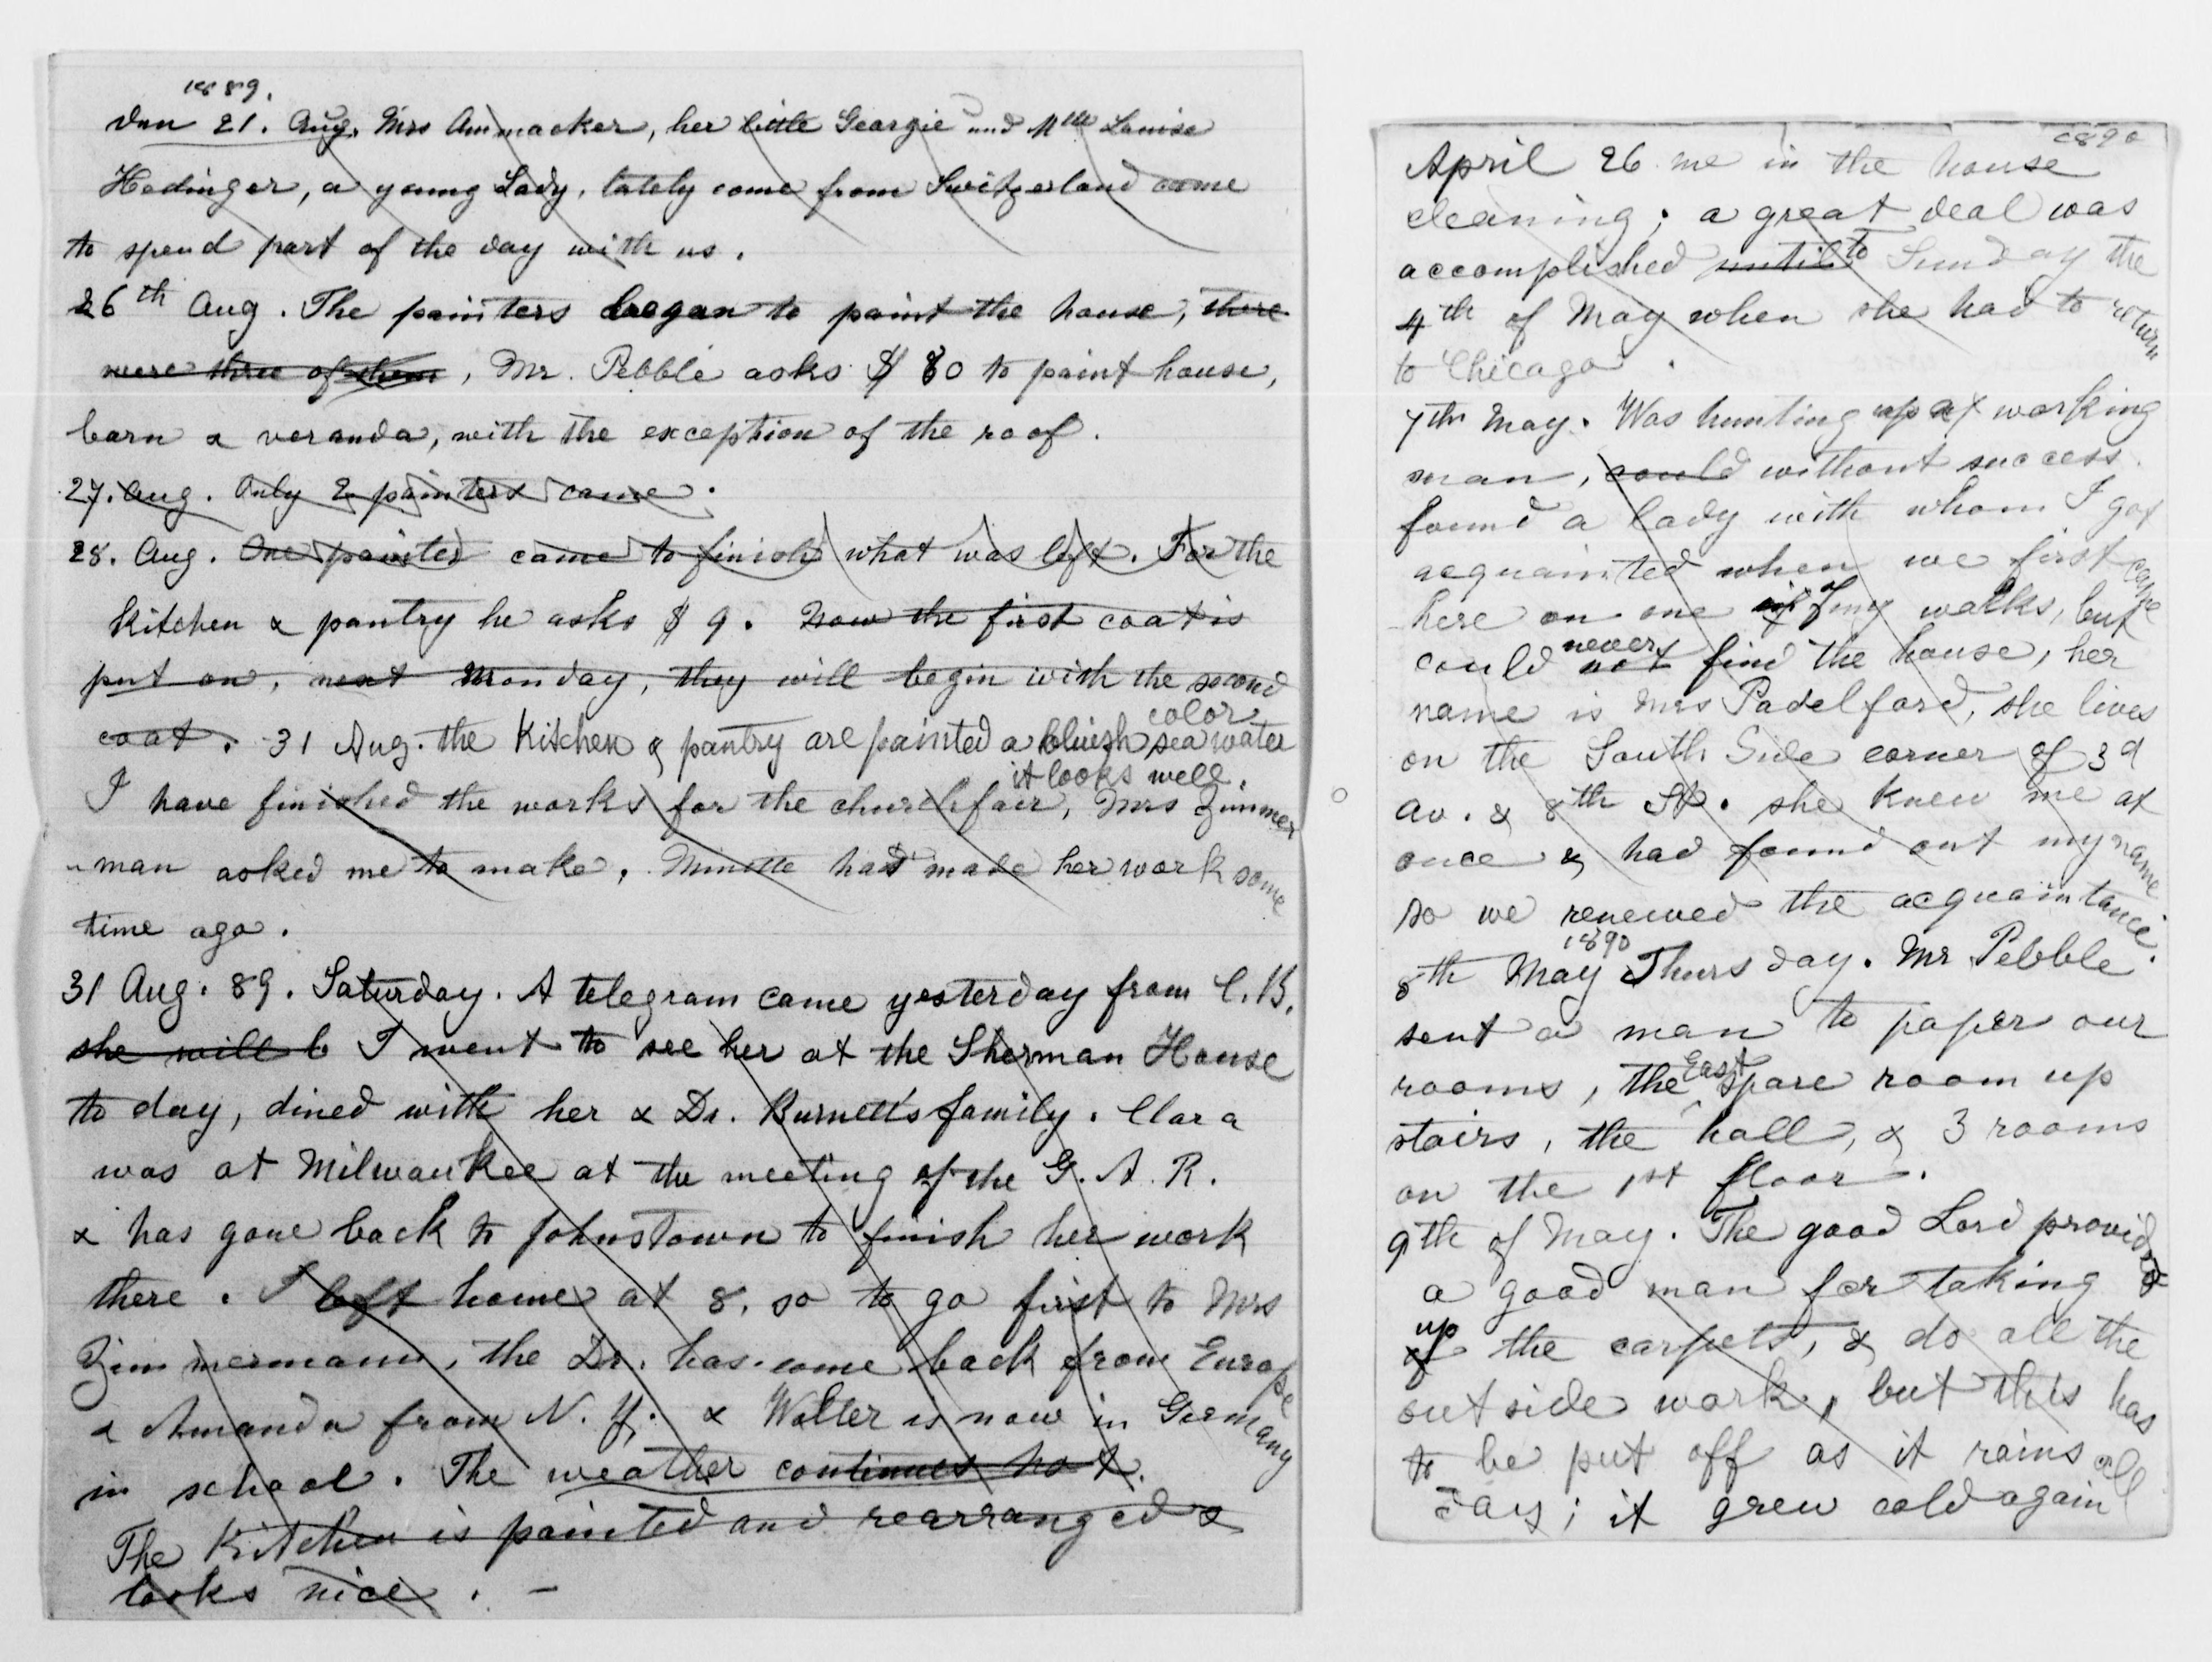 1889.
den 21. Aug. Mrs Ammacker, her little Geargie und Mlle Louise
Hedinger, a young Lady, lately come from Switzerland came
to spend part of the day with us.
26th Aug. The painters began to paint the house, there
were three of them, Mr. Pebble asks $ 80 to paint house,
barn & veranda, with the exception of the roof.
27. Aug. Only 2 painters came.
28. Aug. One painter came to finish what was left. For the
kitchen & pantry he asks $ 9. Now the first coat is
put on, next Monday, they will begin with the second
coat. 31 Aug. the Kitchen & pantry are painted a bluish sea water
color
it looks well.
I have finished the works for the church fair, Mrs Zimmer
-man asked me to make. Minette had made her work some
time ago.
31 Aug. 89. Saturday. A telegram came yesterday from C. B.
she will b I went to see her at the Sherman House
to day, dined with her & Dr. Burnett's family. Clara
was at Milwaukee at the meeting of the G. A. R.
& has gone back to Johnstown to finish her work
there. I left home at 8, so to go first to Mrs
Zimmermann, the Dr. has come back from Europe
& Amanda from N. Y. & Walter is now in Germany
in school. The weather continues hot.
The Kitchen is painted and rearranged &
looks nice. -
1890
April 26 me in the house
cleaning; a great deal was
accomplished until to Sunday the
4th of May when she had to return
to Chicago.
7th May. Was hunting up a working
man, could without success.
found a lady with whom I got
acquainted when we first came
here on one of my walks, but
could not never find the house, her
name is Mrs Padelford, she lives
on the South Side corner of 3d
av. & 8th St. she knew me at
once & had found out my name
so we renewed the acquaintance.
1890
8th May Thursday. Mr Pebble
sent a man to paper our
rooms, the East spare room up
stairs, the hall, & 3 rooms
on the 1st floor.
9th of May. The good Lord provided
a good man for taking
up the carpets, & do all the
outside work, but this has
to be put off as it rains all
day; it grew cold again